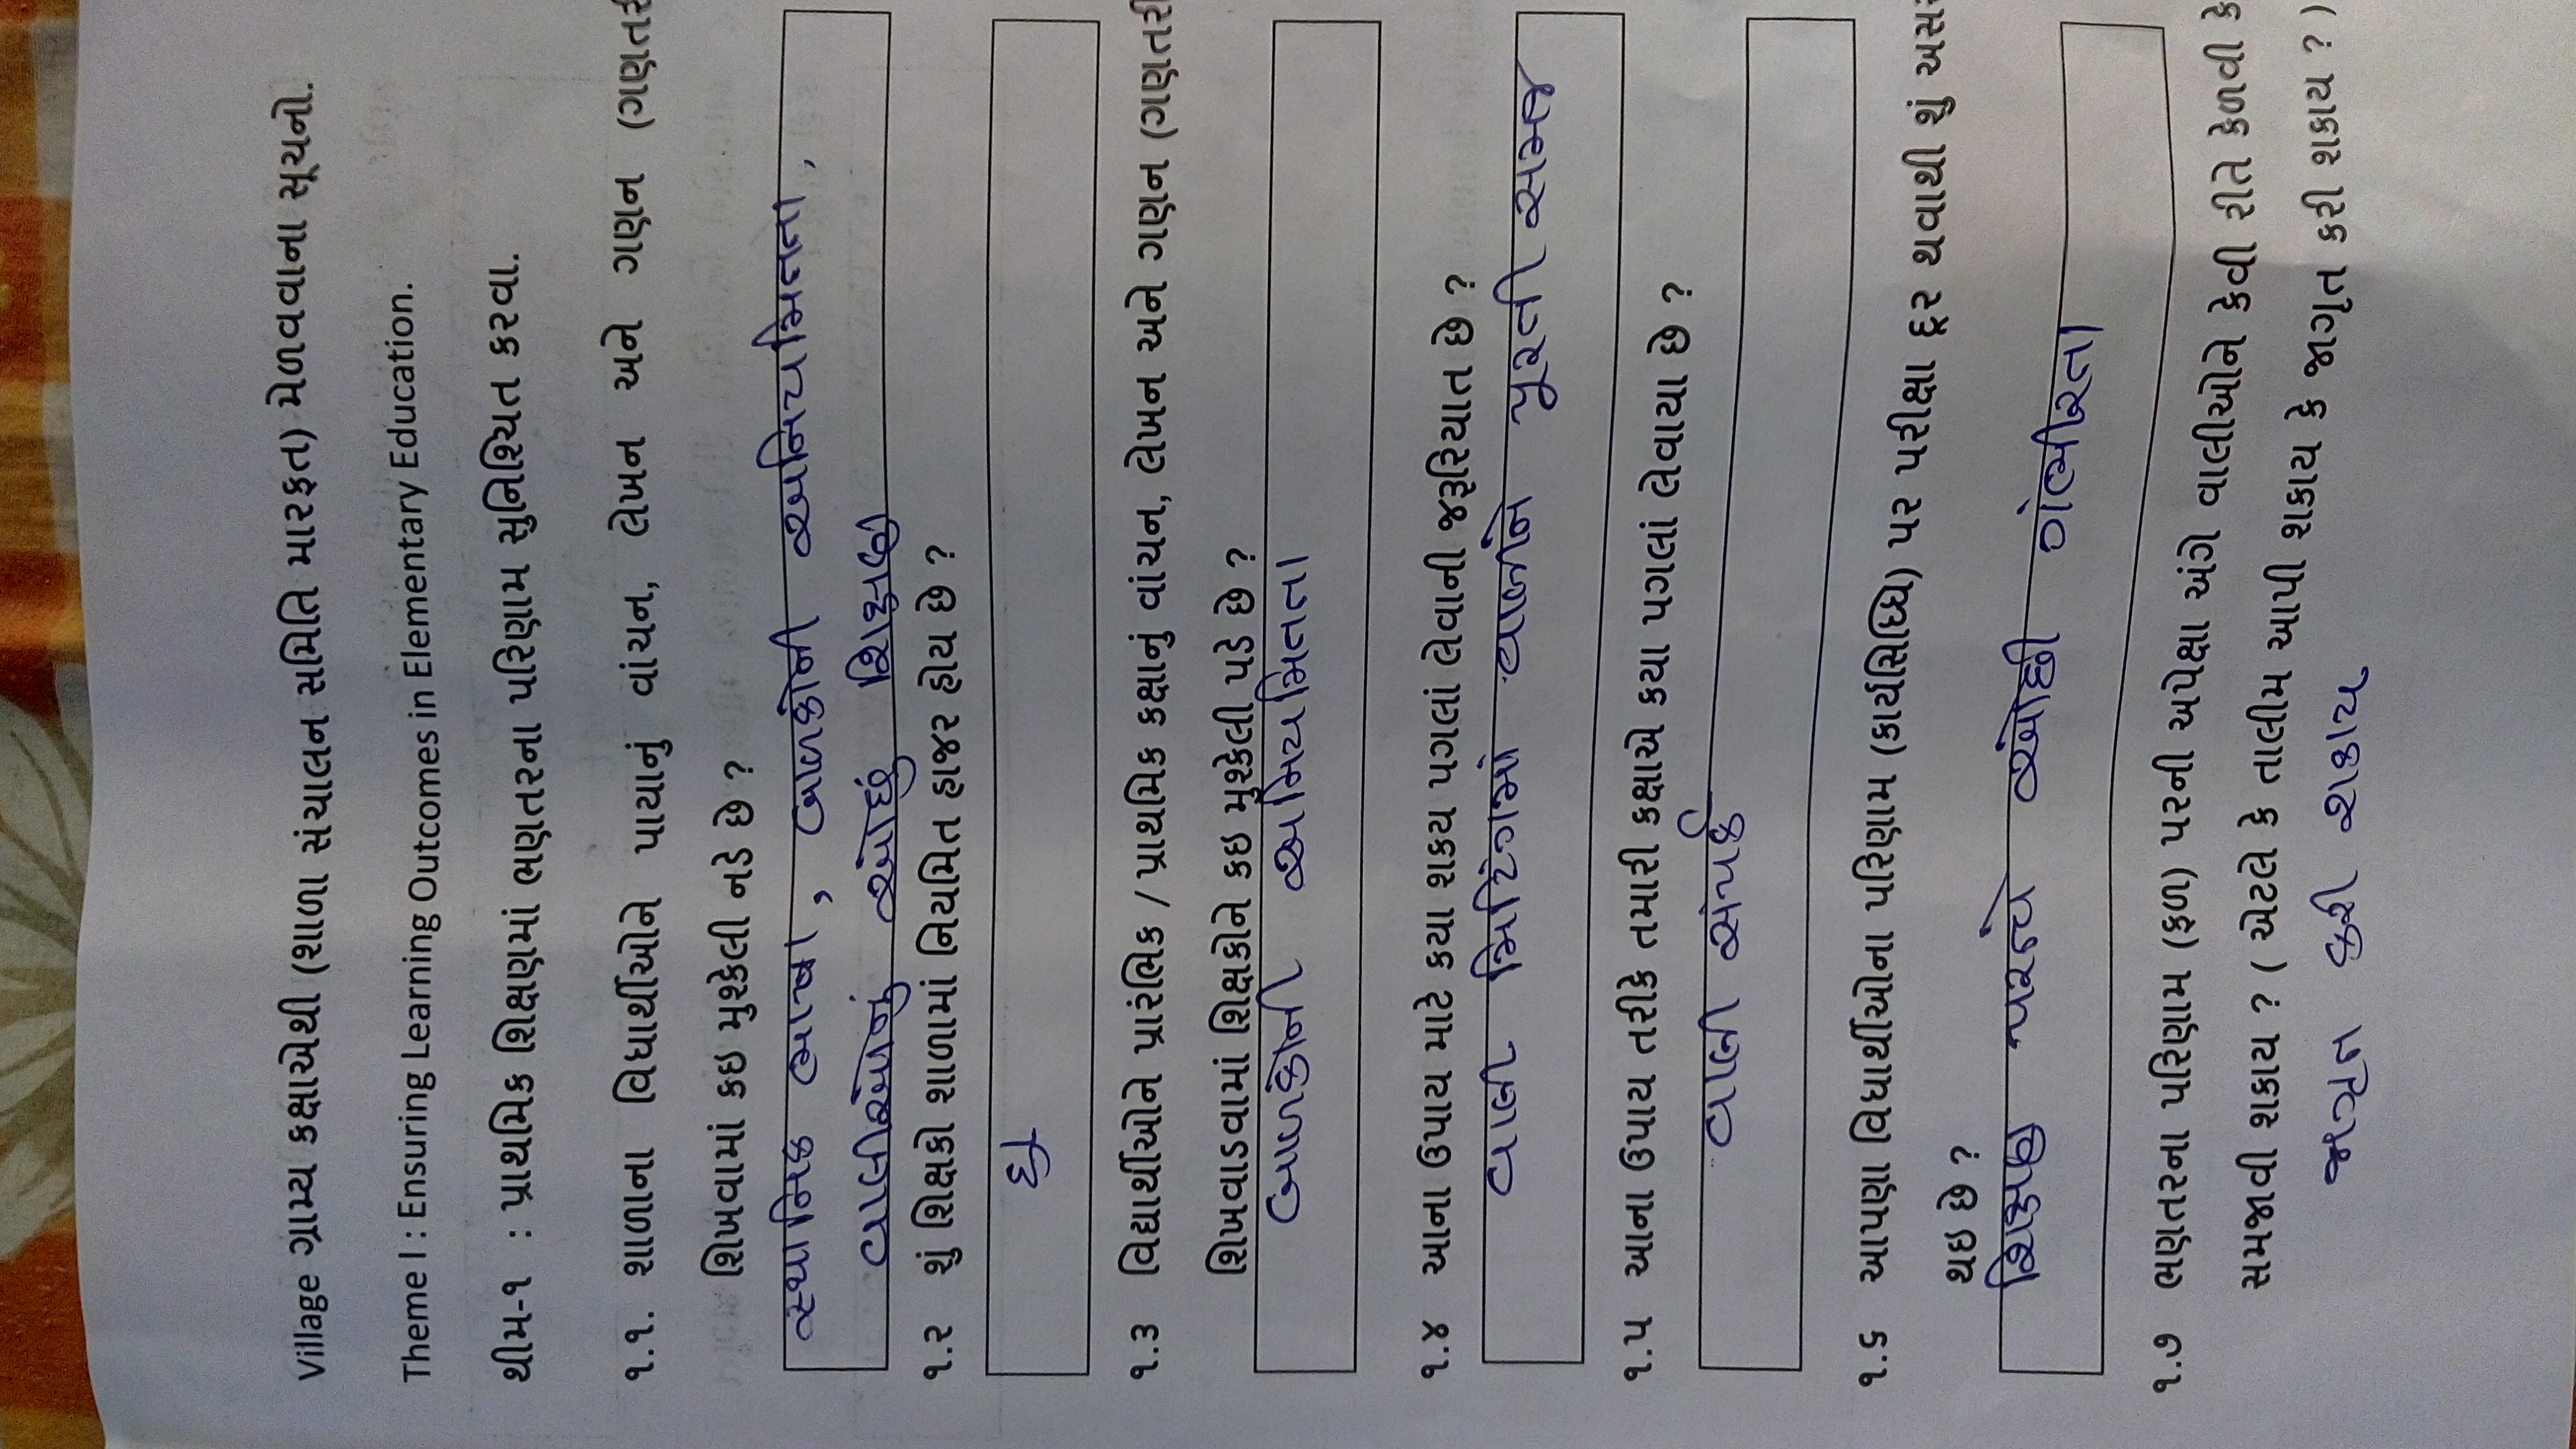 Village ગ્રામ્ય કક્ષાએથી (શાળા સંચાલન સમિતિ મારફત) મેળવવાના સૂચનો.
Theme I : Ensuring Learning Outcomes in Elementary Education.
થીમ-૧ : પ્રાથમિક શિક્ષણમાં ભણતરના પરિણામ સુનિશ્ચિત કરવા.
૧.૧. શાળાના વિધાર્થીઓને પાયાનું વાંચન, લેખન અને ગણન (ગણતરી
શિખવામાં કઇ મુશ્કેલી નડે છે ?
સ્થાનિક ભાષા, બાળકોની અનિયમિતતા,
વાલીઓનું ઓછું શિક્ષણ
૧.૨ શું શિક્ષકો શાળામાં નિયમિત હાજર હોય છે ?
હા
૧.૩ વિદ્યાર્થીઓને પ્રારંભિક / પ્રાથમિક કક્ષાનું વાંચન, લેખન અને ગણન (ગણતરી
શિખવાડવામાં શિક્ષકોને કઇ મુશ્કેલી પડે છે ?
બાળકોની અનિયમિતતા
૧.૪ આના ઉપાય માટે કયા શકય પગલાં લેવાની જરૂરિયાત છે ?
વાલી મિટિંગમાં વાલીને પુરતી સમજ
૧.૫ આના ઉપાય તરીકે તમારી કક્ષાએ કયા પગલાં લેવાયા છે ?
વાલી સંપર્ક
૧.૬ આપણા વિધાર્થીઓના પરિણામ (કાર્યસિધ્ધિ) પર પરીક્ષા દૂર થવાથી શું અસર
થઇ છે ?
શિક્ષણ પરત્વે ઓછી ગંભીરતા
૧.૭ ભણતરના પરિણામ (ફળ) પરની અપેક્ષા અંગે વાલીઓને કેવી રીતે કેળવી કે
સમજાવી શકાય ? ( એટલે કે તાલીમ આપી શકાય કે જાગૃત કરી શકાય ? )
જાગૃત કરી શકાય